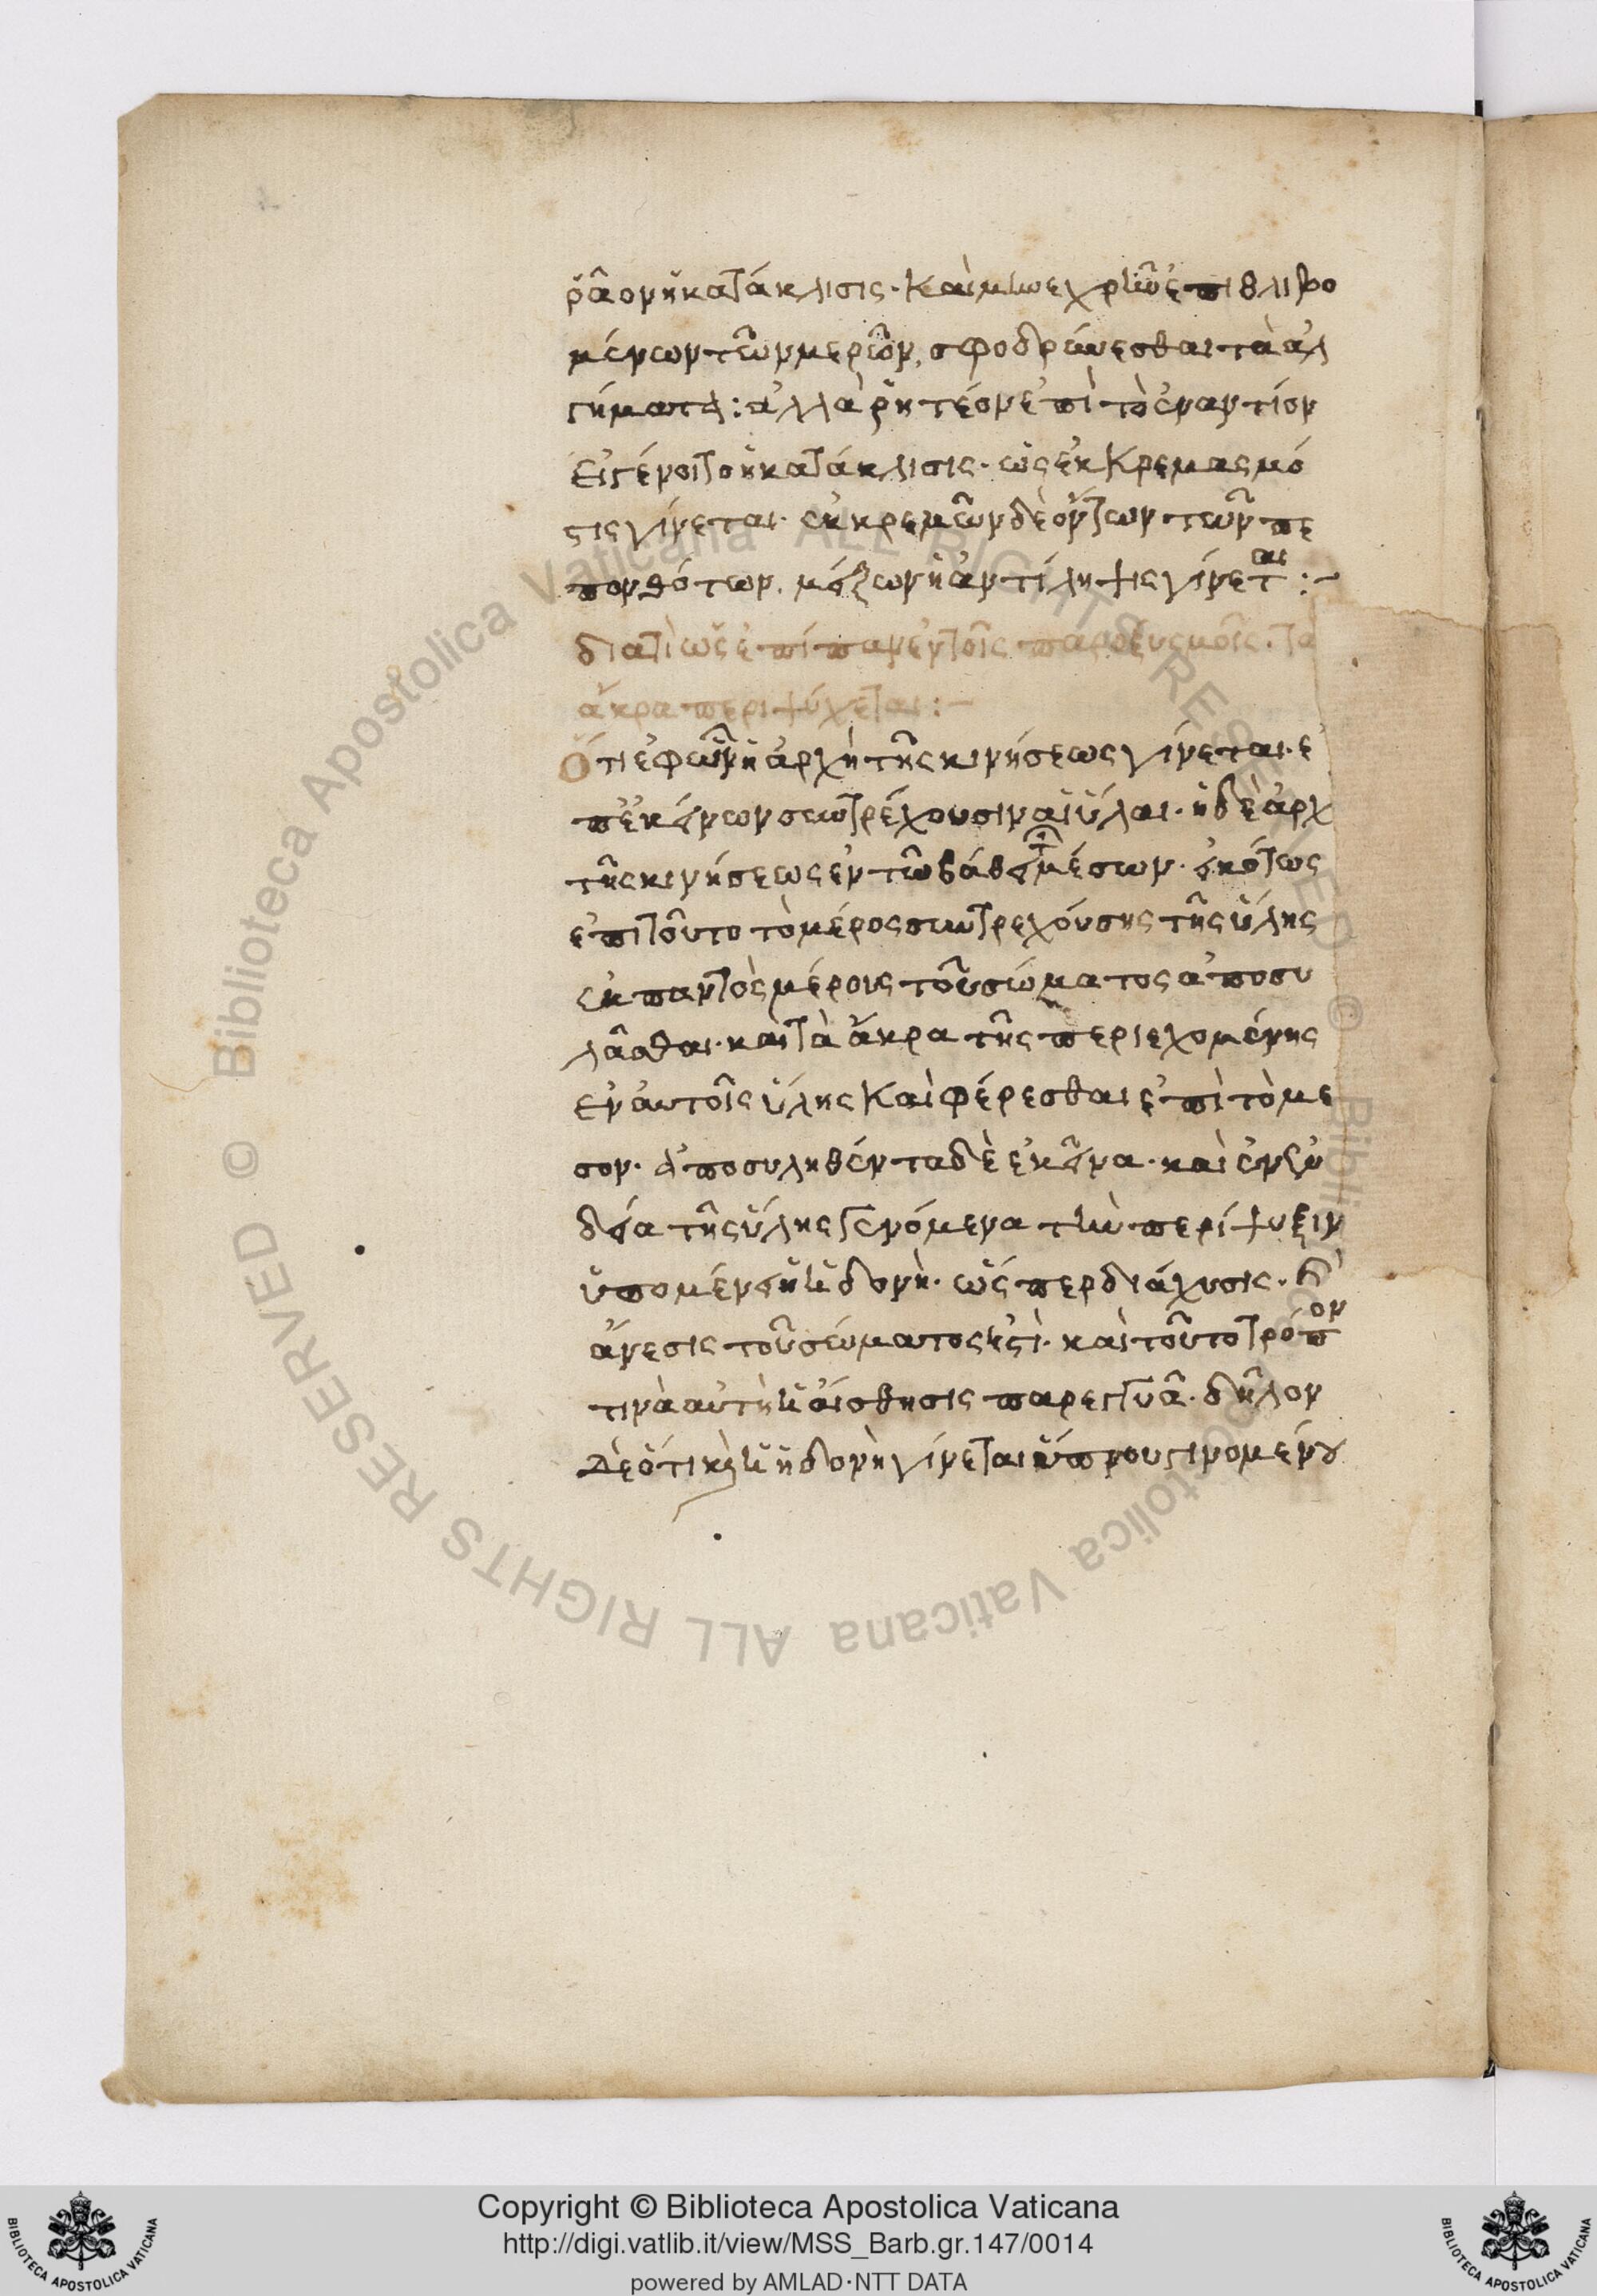 ῥᾶον ἡ κατάκλισις· καὶ μὴν ἐχρῆν ἐπιθλιβο
μένων τῶν μερῶν, σφοδρύνεσθαι τὰ ἀλ
γήματα: ἀλλὰ ῥητέον ἐπὶ τὸ ἐναντίον
εἰ γένοιτο ἡ κατάκλισις· ὡς ἐκκρεμασμό
ς τις γίνεται· ἐκκρεμῶν δὲ ὄντων τῶν πε
πονθότων, μείζων ἡ ἀντίληψις γίνεται :-
διατί ὡς ἐπίπαν ἐν τοῖς παροξυσμοῖς· τὰ
ἄκρα περιψύχεται :-
Ὅτι ἐφ ὧν ἡ ἀρχὴ τῆς κινήσεως γίνεται· ἐ
π ἐκείνων συντρέχουσιν αἱ ὗλαι· ἡ δὲ ἀρχ
τῆς κινήσεως ἐν τῶ βάθει τῶν μέσων· εἰκότως
ἐπὶ τοῦτο τὸ μέρος συντρεχούσης τῆς ὕλης
ἐκ παντὸς μέρους τοῦ σώματος ἀποσυ
λᾶσθαι· καὶ τὰ ἄκρα τῆς περιεχομένης
ἐν αὐτοῖς ὕλης καὶ φέρεσθαι ἐπὶ τὸ με
σον· ἀποσυληθέντα δὲ ἐκεῖνα· καὶ ἐν
δεία τῆς ὕλης γενόμενα τὴν περίψυξιν
ὑπομένει ἡ ἡδονὴ· ὥσπερ διάχυσις·
ἄνεσις τοῦ σώματος ἐστὶ· καὶ τοῦτο τρόπον
τινὰ αὐτὴ ἡ αἴσθησις παρεγγυᾶ· δῆλον
δὲ ὅτι καὶ ἡ ἡδονὴ γίνεται